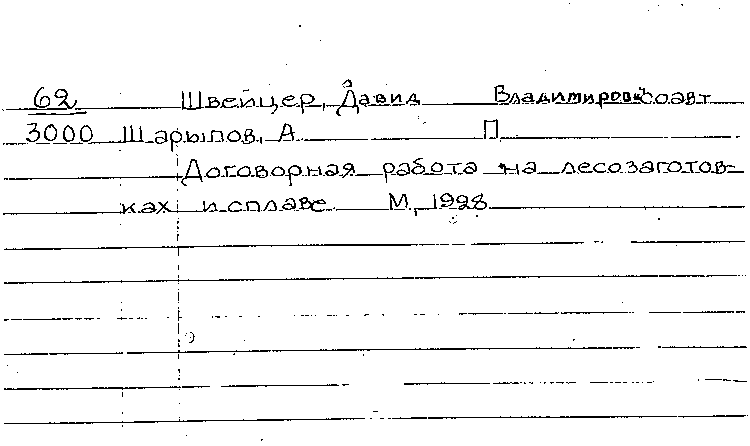 62 Швейцер, Давид Владимиров. соавт
3000 Шарыпов, А. П.
Договорная работа на лесозаготов-
ках и сплаве М, 1928